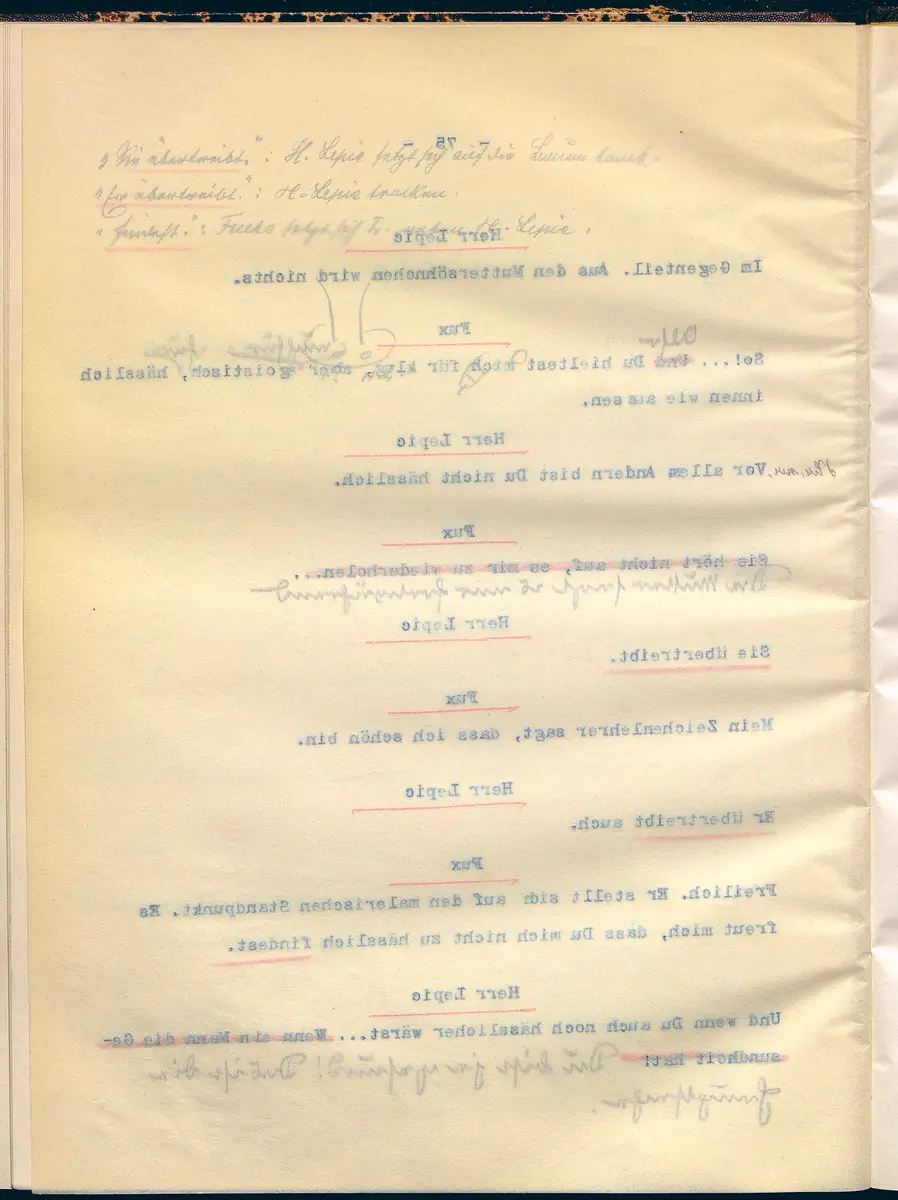 "Sie übertreibt.": H. Lepic setzt sich auf die
"Er übertreibt.": H. Lepic trocken.
"findest.": Fuchs setzt sich neben H. Lepic.
- 75 -
Herr Lepic
Im Gegenteil. Aus den Muttersöhnchen wird nichts.
Fux
So!... Und Du hieltest mich für klug, aber egoistisch, hässlich
innen wie aussen.
Herr Lepic
Vor allem Andern bist Du nicht hässlich.
Fux
Sie hört nicht auf, es mir zu wiederholen...
Die Mutter sagt es mir fortwährend
Herr Lepic
Sie übertreibt.
Fux
Mein Zeichenlehrer sagt, dass ich schön bin.
Herr Lepic
Er übertreibt auch.
Fux
Freilich. Er stellt sich auf den malerischen Standpunkt. Es
freut mich, dass Du mich nicht zu hässlich findest.
Herr Lepic
Und wenn Du auch noch hässlicher wärst... Wenn ein Mann die Ge-
sundheit hat! Du bist ja gesund! Das ist die
Hauptsache.